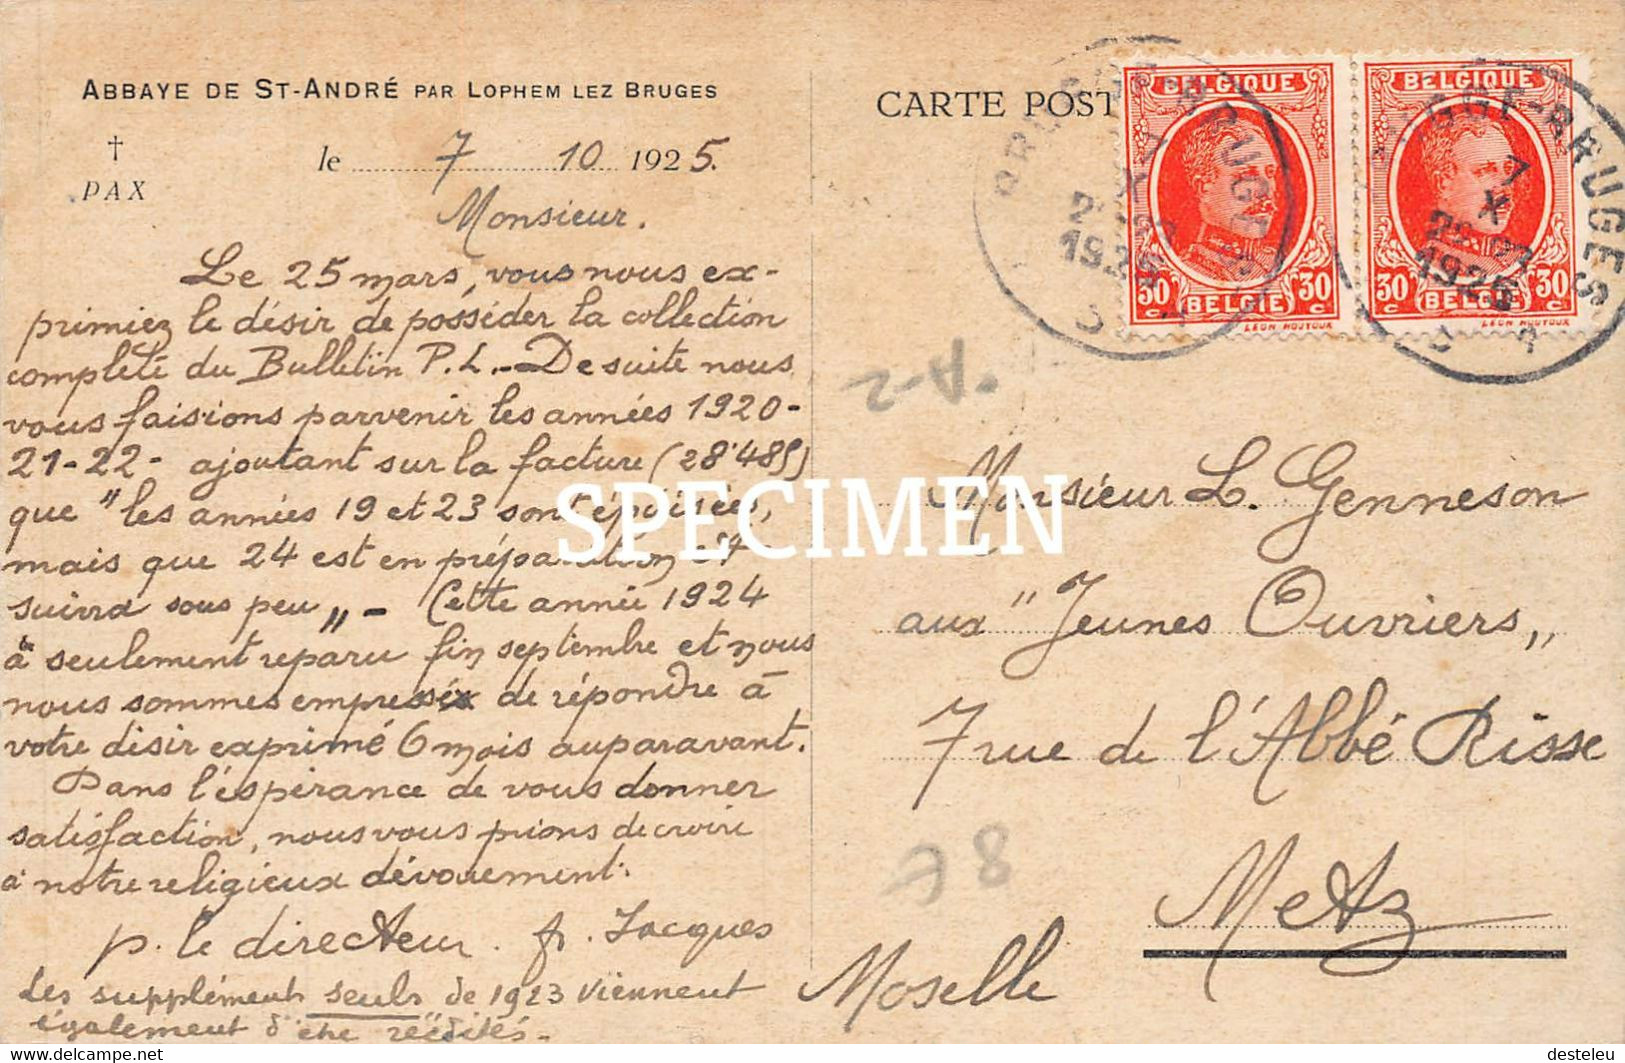 ABBAYE DE ST-ANDRÉ PAR LOPHEM LEZ BRUGES
†
PAX
le 7 10 1925.
Monsieur.
Le 25 mars, vous nous ex-
primiez le désir de posséder la collection
complète du Bulletin P.L. - De suite nous
vous faisions parvenir les années 1920-
21-22- ajoutant sur la facture (28.485)
que "les années 19 et 23 sont épuisées,
mais que 24 est en préparation et
suivra sous peu„ - Cette année 1924
à seulement reparu fin septembre et nous
nous sommes de répondre à
votre désir exprimé 6 mois auparavant.
Dans l'espérance de vous donner
satisfaction, nous vous prions de croire
à notre religieux dévouement.
p. le directeur. fr. Jacques
Les suppléments seuls de 1923 viennent
également d'être réédités.-
CARTE POST
BELGIQUE
30 c BELGIE 30 c
LEON HOUYOUX
BELGIQUE
30 c BELGIE 30 c
LEON HOUYOUX
BRUGES
7
X
1925
BRUGGE-BRUGES
7
X
1925
A-2
Monsieur L. Genneson
aux "Jeunes Ouvriers„
7 rue de l'Abbé Risse
A8
Metz
Moselle
SPECIMEN
delcampe.net
desteleu